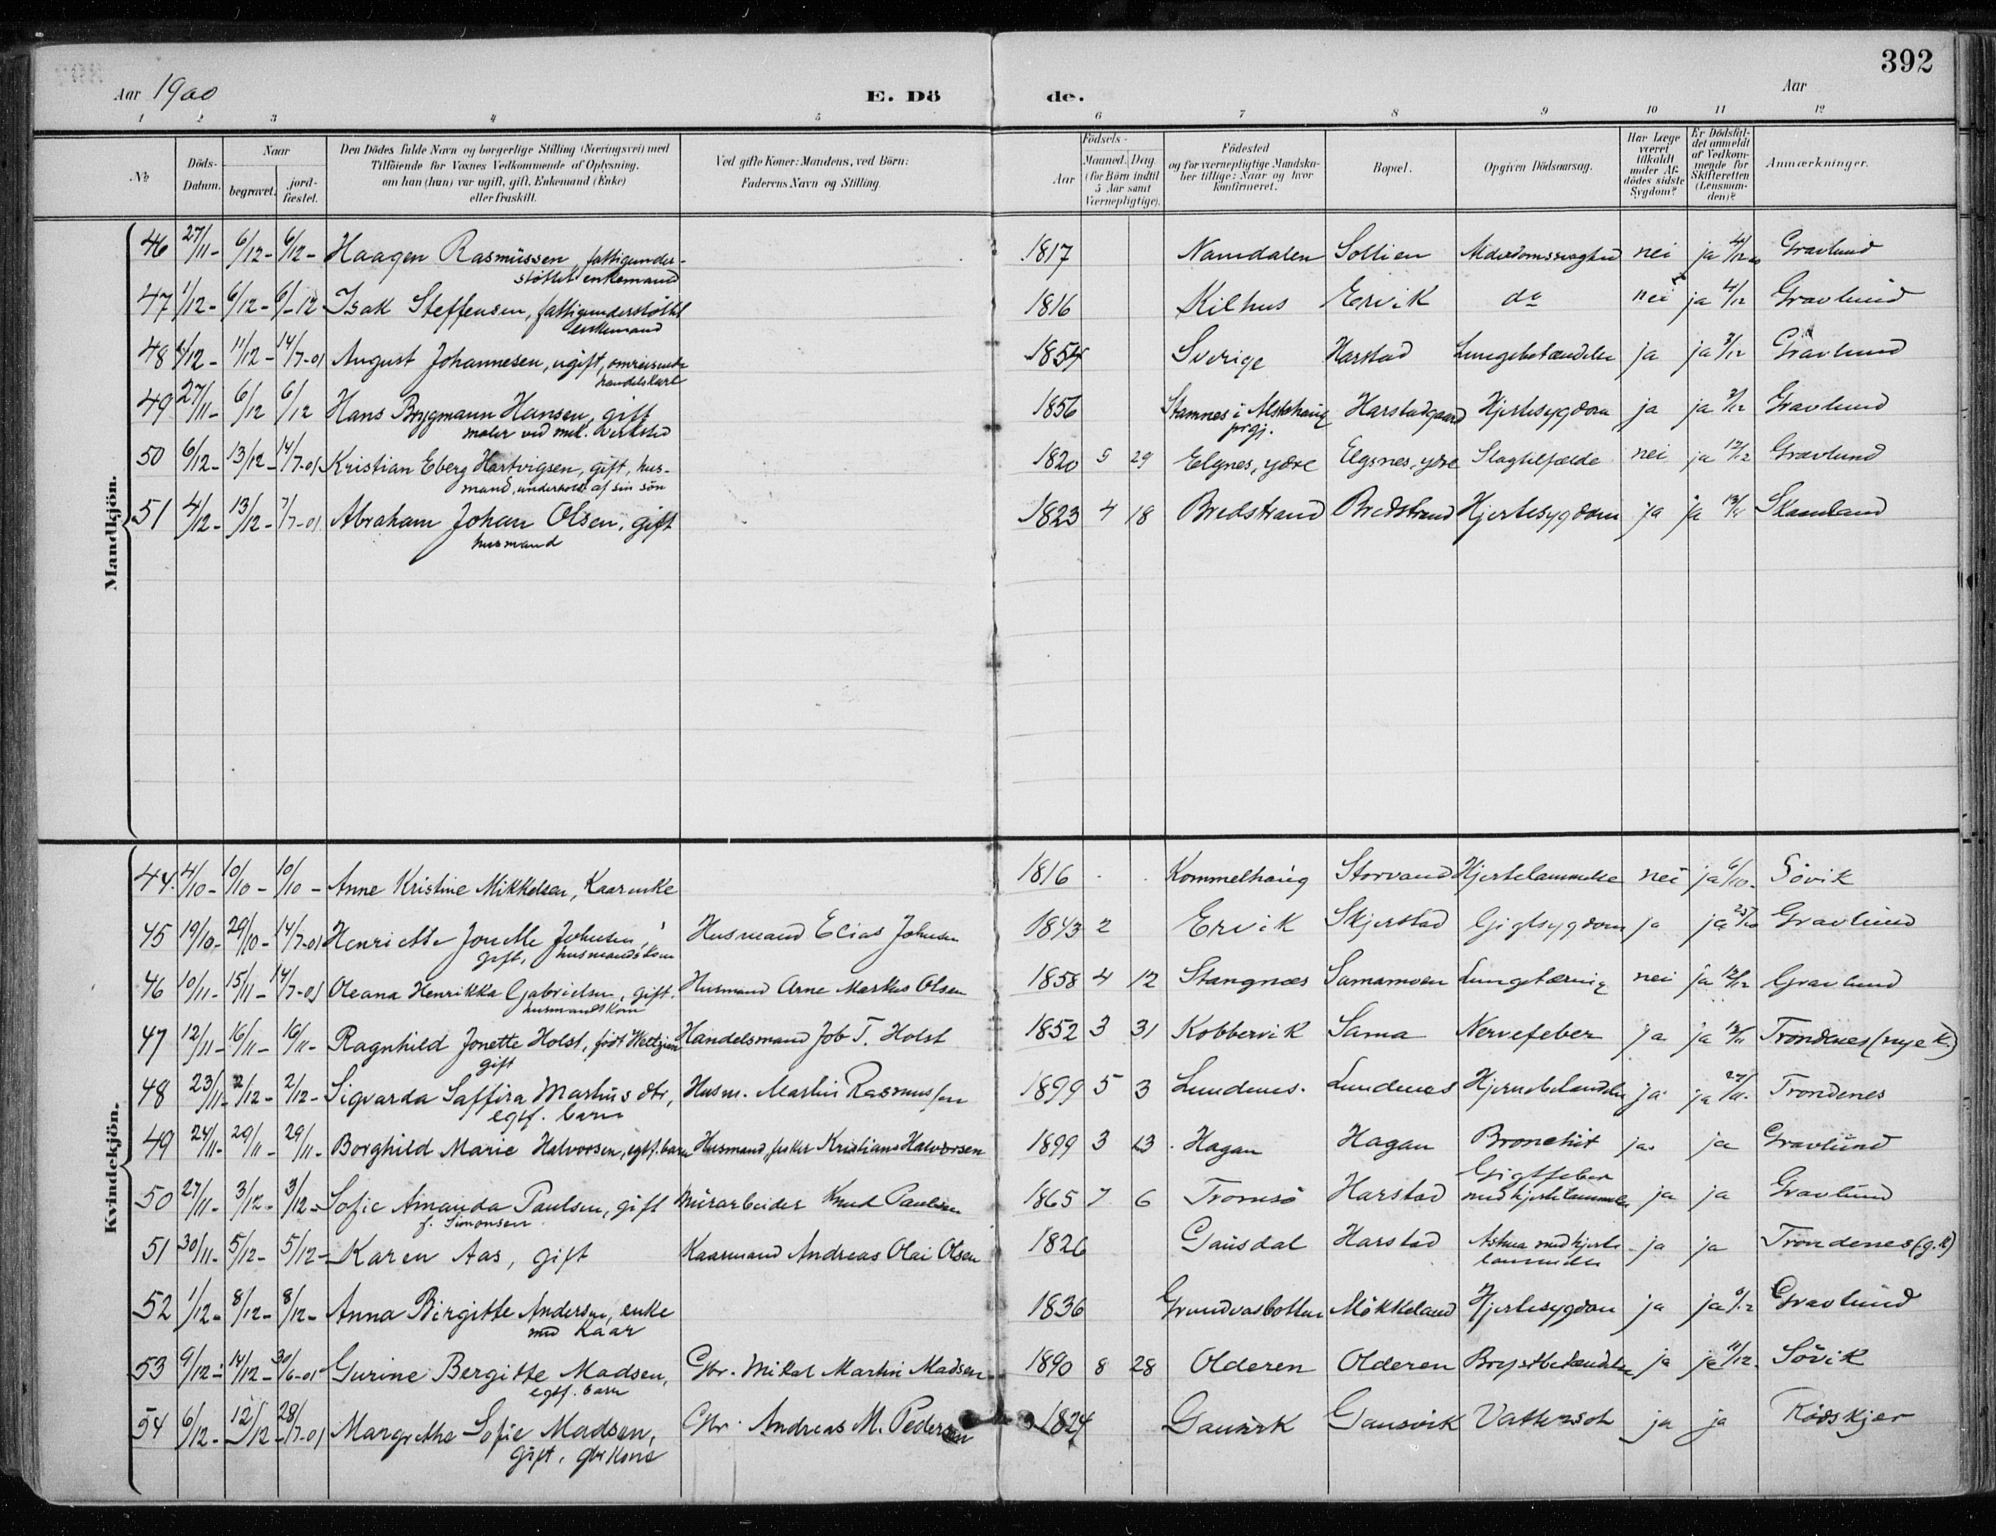 392
Aar 1900
E. Döde.
Aar
1 2 3 4 5 6 7 8 9 10 11 12
No
Döds-Datum.
Naar
begravet.
jord-fæstet.
Den Dödes fulde Navn og borgerlige Stilling (Næringsvei) med
Tilföiende for Voxnes Vedkommende af Oplysning,
om han (hun) var ugift, gift, Enkemand (Enke)
eller fraskilt.
Ved gifte Koner: Mandens, ved Börn:
Faderens Navn og Stilling.
Födsels-
Aar
Maaned. Dag
(for Börn indtil
5 Aar samt
Værnepligtige).
Födested
og for værnepligtige Mandska-
ber tillige: Naar og hvor
konfirmeret.
Bopæl.
Opgiven Dödsaarsag.
Har Læge
været
tilkaldt
under Af-
dödes sidste
Sygdom?
Er Dödsfal-
det anmeldt
af Vedkom-
mende for
Skifteretten
(Lensman-
den)?
Anmærkninger.
Mandkjön.
46 27/11- 6/12- 6/12- Haagen Rasmussen, fattigunder- 1817 Namdalen Sollien Alderdomssvaghed nei ja 4/12 Gravlund
støttet enkemand
47 1/12- 6/12- 6/-12 Isak Steffensen, fattigunderstøttet 1816 Kilhus Ervik do nei ja 4/12 Gravlund
enkemand
48 4/12- 11/12- 14/7-01 August Johannesen, ugift, omreisende 1854 Sverige Harstad Lungebetændelse ja ja 3/12 Gravlund
handelskarl
49 27/11- 6/12 6/12 Hans Brygmann Hansen, gift 1856 Stamnes i Alstahaug Harstadgaard Hjertesygdom ja ja 3/12 Gravlund
maler ved mek. verksted prgj.
50 6/12- 13/12- 14/7-01 Kristian Eberg Hartvigsen, gift, hus- 1820 5 29 Elgnes, ydre Elgsnes, ydre Slagtilfælde nei ja 12/12 Gravlund
mand, underholdt af sin sön
51 4/12- 13/12- 7/7-01 Abraham Johan Olsen, gift 1823 4 18 Bredstrand Bredstrand Hjertesygdom ja ja Skamland
husmand
Kvindekjön.
44. 4/10- 10/10- 10/10- Anne Kristine Mikkelsen, Kaarenke 1816 Kommelhaug Storvand Hjertelammelse nei ja 6/10- Sövik
45 19/10- 29/10- 14/7-01 Henriette Jonette Johnsen, Husmand Elias Johnsen 1843 2 Ervik Skjerstad Gigtsygdom ja ja Gravlund
gift, husmandskone
46 10/11- 15/11- 14/7-01 Oleana Henrikka Gabrielsen, gift. Husmand Arne Markus Olsen 1858 4 12 Stangnæs Samamoen Lungetæring nei ja 12/12 Gravlund
husmandskone
47 12/11- 16/11- 16/11- Ragnhild Jonette Holst, født Weltzien Handelsmand Job T. Holst 1852 3 31 Kobbervik Sama Nervefeber ja ja 13/11 Trondenes (nye k.)
gift
48 23/11- 2/12- 2/12- Sigvarda Saffira Martinsdtr, Husm. Martin Rasmussen 1899 5 3 Lundenes. Lundenes Hjernebetændelse ja ja 27/11. Trondenes
egtf. barn
49 24/11- 29/11- 29/11- Borghild Marie Halvorsen, egtf. barn Husmand, fisker Kristians Halvorsen 1899 3 13. Hagan Hagan Bronchit ja ja Gravlund
50 27/11- 3/12- 3/12- Sofie Amanda Paulsen, gift Murarbeider Knud Paulsen 1865 7 6 Tromsö Harstad Gigtfeber
med hjertelammelse ja ja Gravlund
f. Simonsen
51 30/11- 5/12- 5/12- Karen Aas, gift Kaarmand Andreas Olai Olsen 1826 Gausdal Harstad Astma med hjerte- ja ja Trondenes (g.k)
lammelse
52 1/12- 8/12- 8/12- Anna Birgitte Andersen, enke 1836 Grundvasbotten Mökkeland Hjertesygdom ja ja 9/12 Gravlund
med kaar
53 9/12- 14/12- 30/6-01 Gurine Bergitte Madsen, Gbr. Mikal Martin Madsen 1890 8 28 Olderen Olderen Brystbetændelse ja ja 11/12. Sövik
egtf. barn
54 6/12- 12/12- 28/7-01 Margrethe Sofie Madsen, Gbr. Andreas M. Pedersen 1824 Gausvik Gausvik Vattersot ja ja Rödskjer
gift, gbr kone